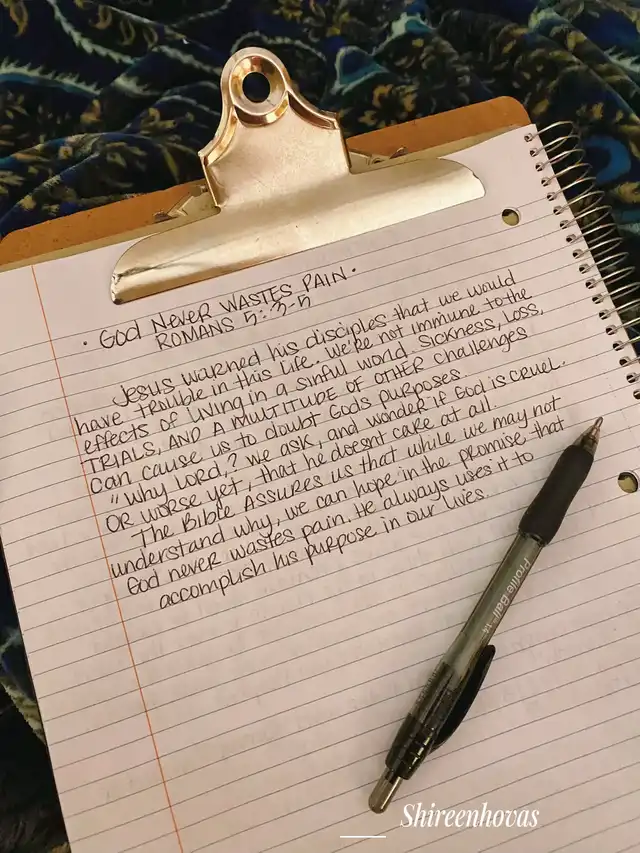 · God Never WASTES PAIN ·
ROMANS 5:3-5
Jesus warned his disciples that we would
have trouble in this life. We're not immune to the
effects of living in a sinful world. Sickness, loss,
TRIALS, AND A MULTITUDE OF OTHER challenges
can cause us to doubt Gods purposes.
"Why Lord,? we ask, and wonder if God is cruel.
OR worse yet, that he doesnt care at all.
The Bible Assures us that while we may not
understand why, we can hope in the promise that
God never wastes pain. He always uses it to
accomplish his purpose in our lives.
Profile Ball 1.4
Shireenhovas